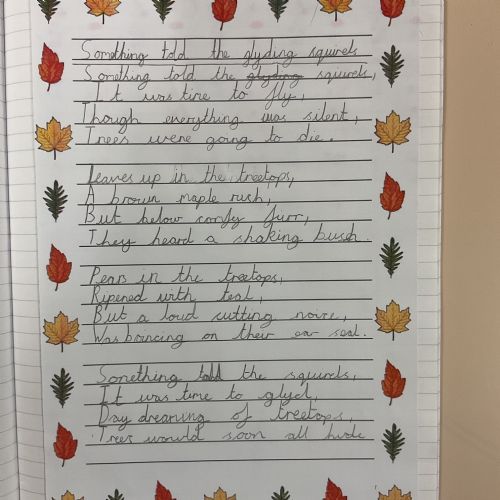 Something told the glyding squirels
Something told the glyding squirels,
It was time to fly,
Though everything was silent,
Trees were going to die.
Leaves up in the treetops,
A brown maple rush,
But below comfy furr,
They heard a shaking bush.
Pears in the treetops,
Ripened with teal,
But a loud cutting noise,
Was bouncing on their ear seal.
Something told the squirels,
It was time to glyd,
Day dreaming of treetops,
Trees would soon all hide